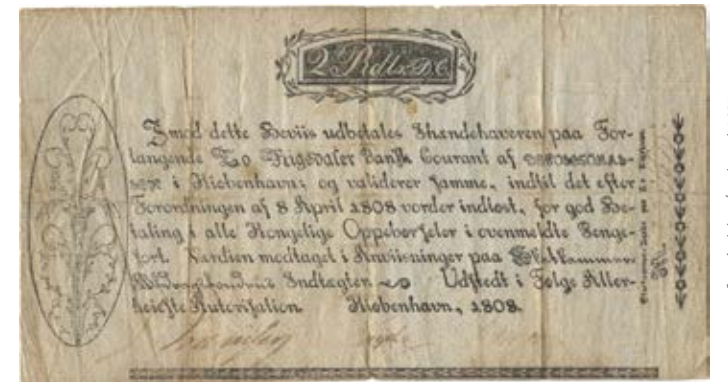 2 Rdlr. D. C.
Imod dette Beviis udbetales Ihændehaveren paa For-
langende To Rigsdaler Dansk Courant af
i Kiøbenhavn; og validerer samme, indtil det efter
Forordningen af 8 April 1808 vorder indløst, for god Be-
taling i alle Kongelige Oppebørseler i ovenmeldte Penge-
sort. Verdien modtaget i Anviisninger paa
Indtægter Udstedt i Følge Aller-
høieste Autorisation. Kiøbenhavn, 1808.